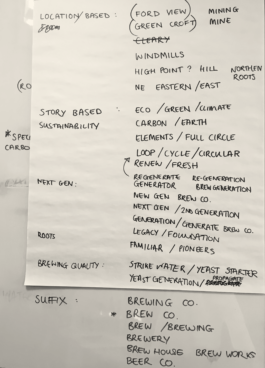 LOCATION/BASED: (FORD VIEW) MINING
(GREEN CROFT) MINE
CLEARY
WINDMILLS
HIGH POINT? HILL NORTHERN ROOTS
NE EASTERN/EAST
STORY BASED: ECO/GREEN/CLIMATE
SUSTAINABILITY CARBON/EARTH
ELEMENTS/FULL CIRCLE
LOOP/CYCLE/CIRCULAR
RENEW/FRESH
REGENERATE RE-GENERATION
NEXT GEN: GENERATOR BREWGENERATION
NEW GEN BREW CO.
NEXT GEN/2ND GENERATION
GENERATION/GENERATE BREW CO.
ROOTS LEGACY/FOUNDATION
FAMILIAR/PIONEERS
BREWING QUALITY: STRIKE WATER/YEAST STARTER
YEAST GENERATION/PROPAGATE
SUFFIX: BREWING CO.
BREW CO.
BREW/BREWING
BREWERY
BREW HOUSE BREW WORKS
BEER CO.
(RO
*SPEC
CARBO